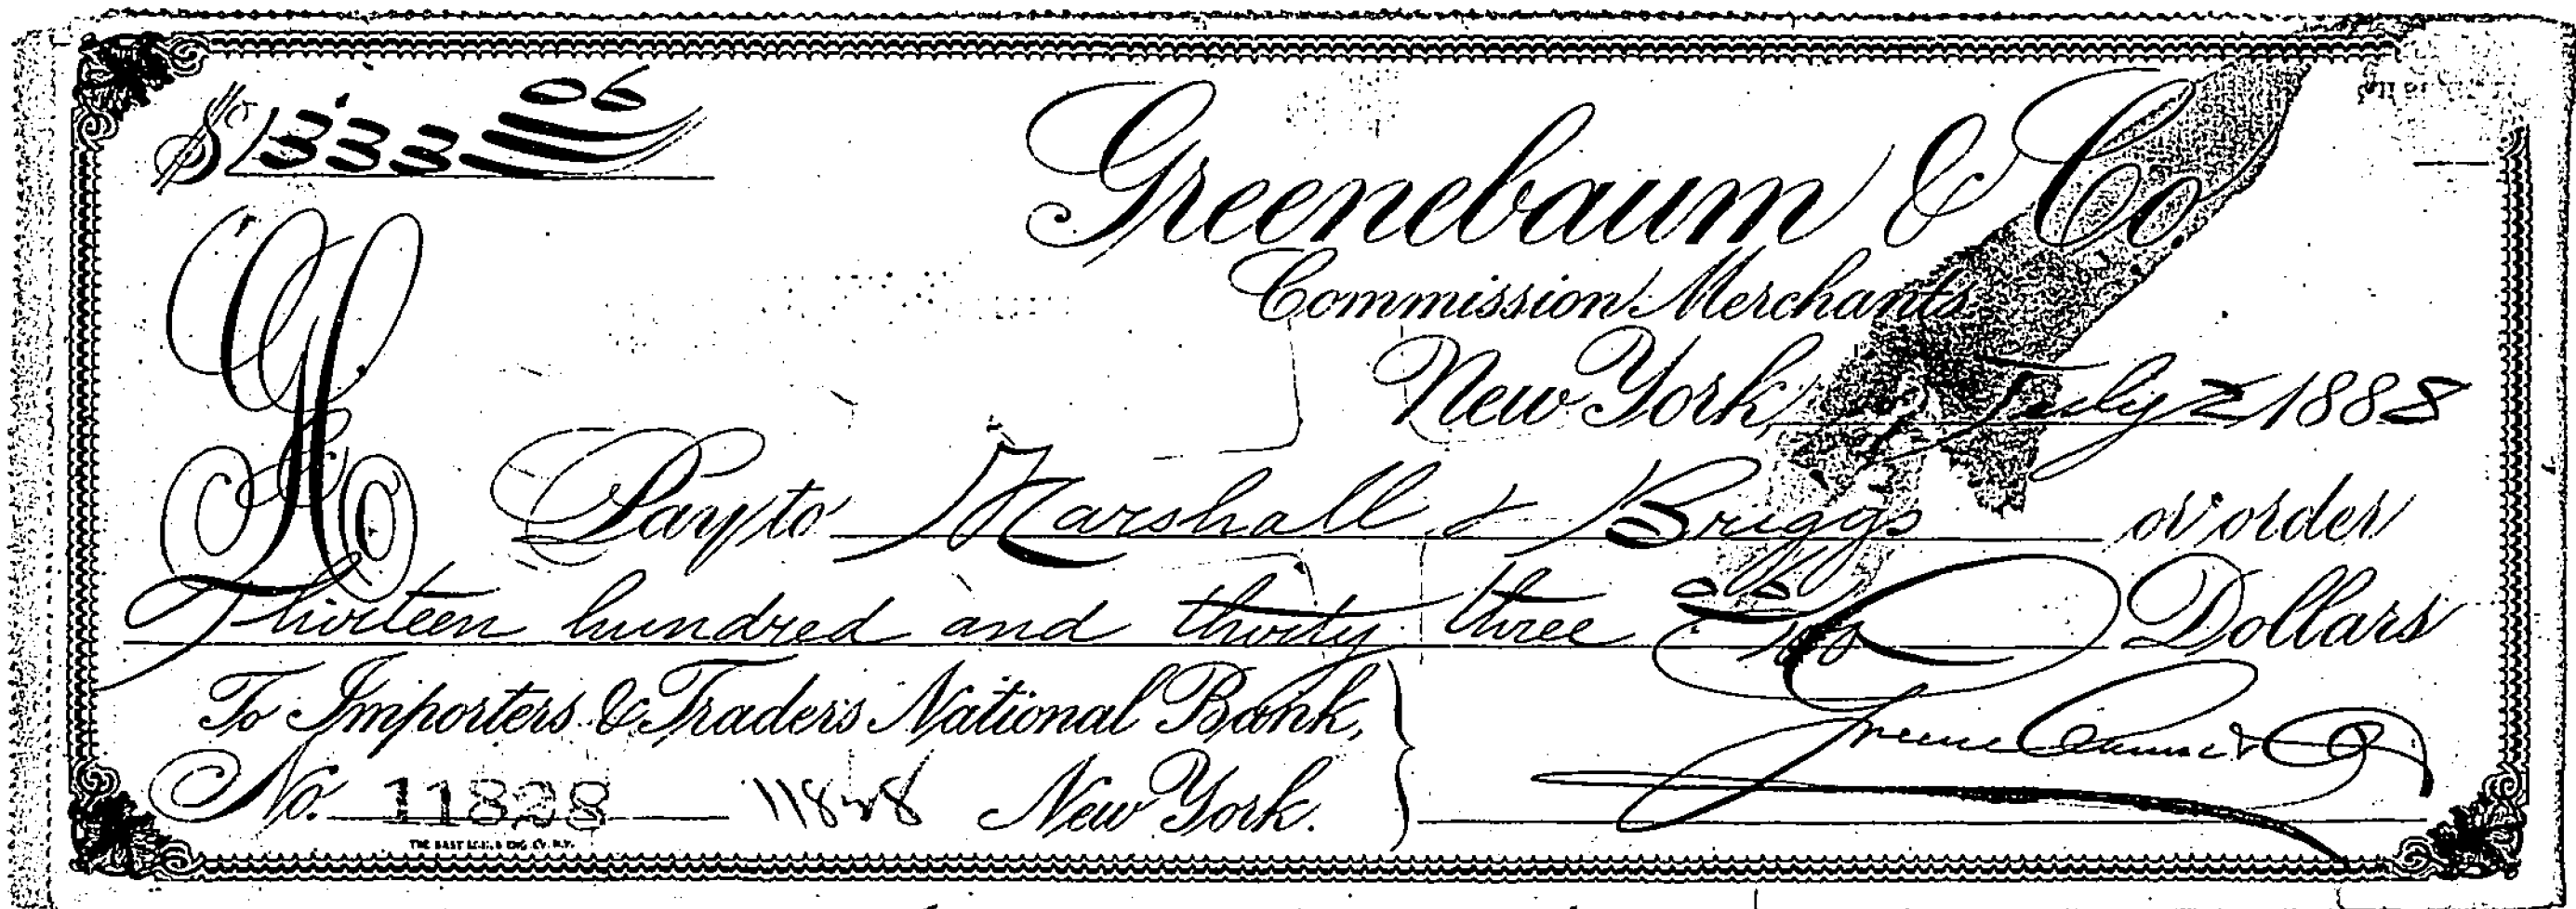 $1333 06
Greenebaum & Co.
Commission Merchants
New York, July 2 1888
Pay to Marshall & Briggs or order
Thirteen hundred and thirty three 06/100 Dollars
To Importers & Traders National Bank,
Greenebaum & Co
No. 11828 11828 New York.